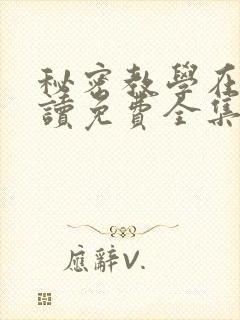 秘密教學在
讀免費全集
應辭V.